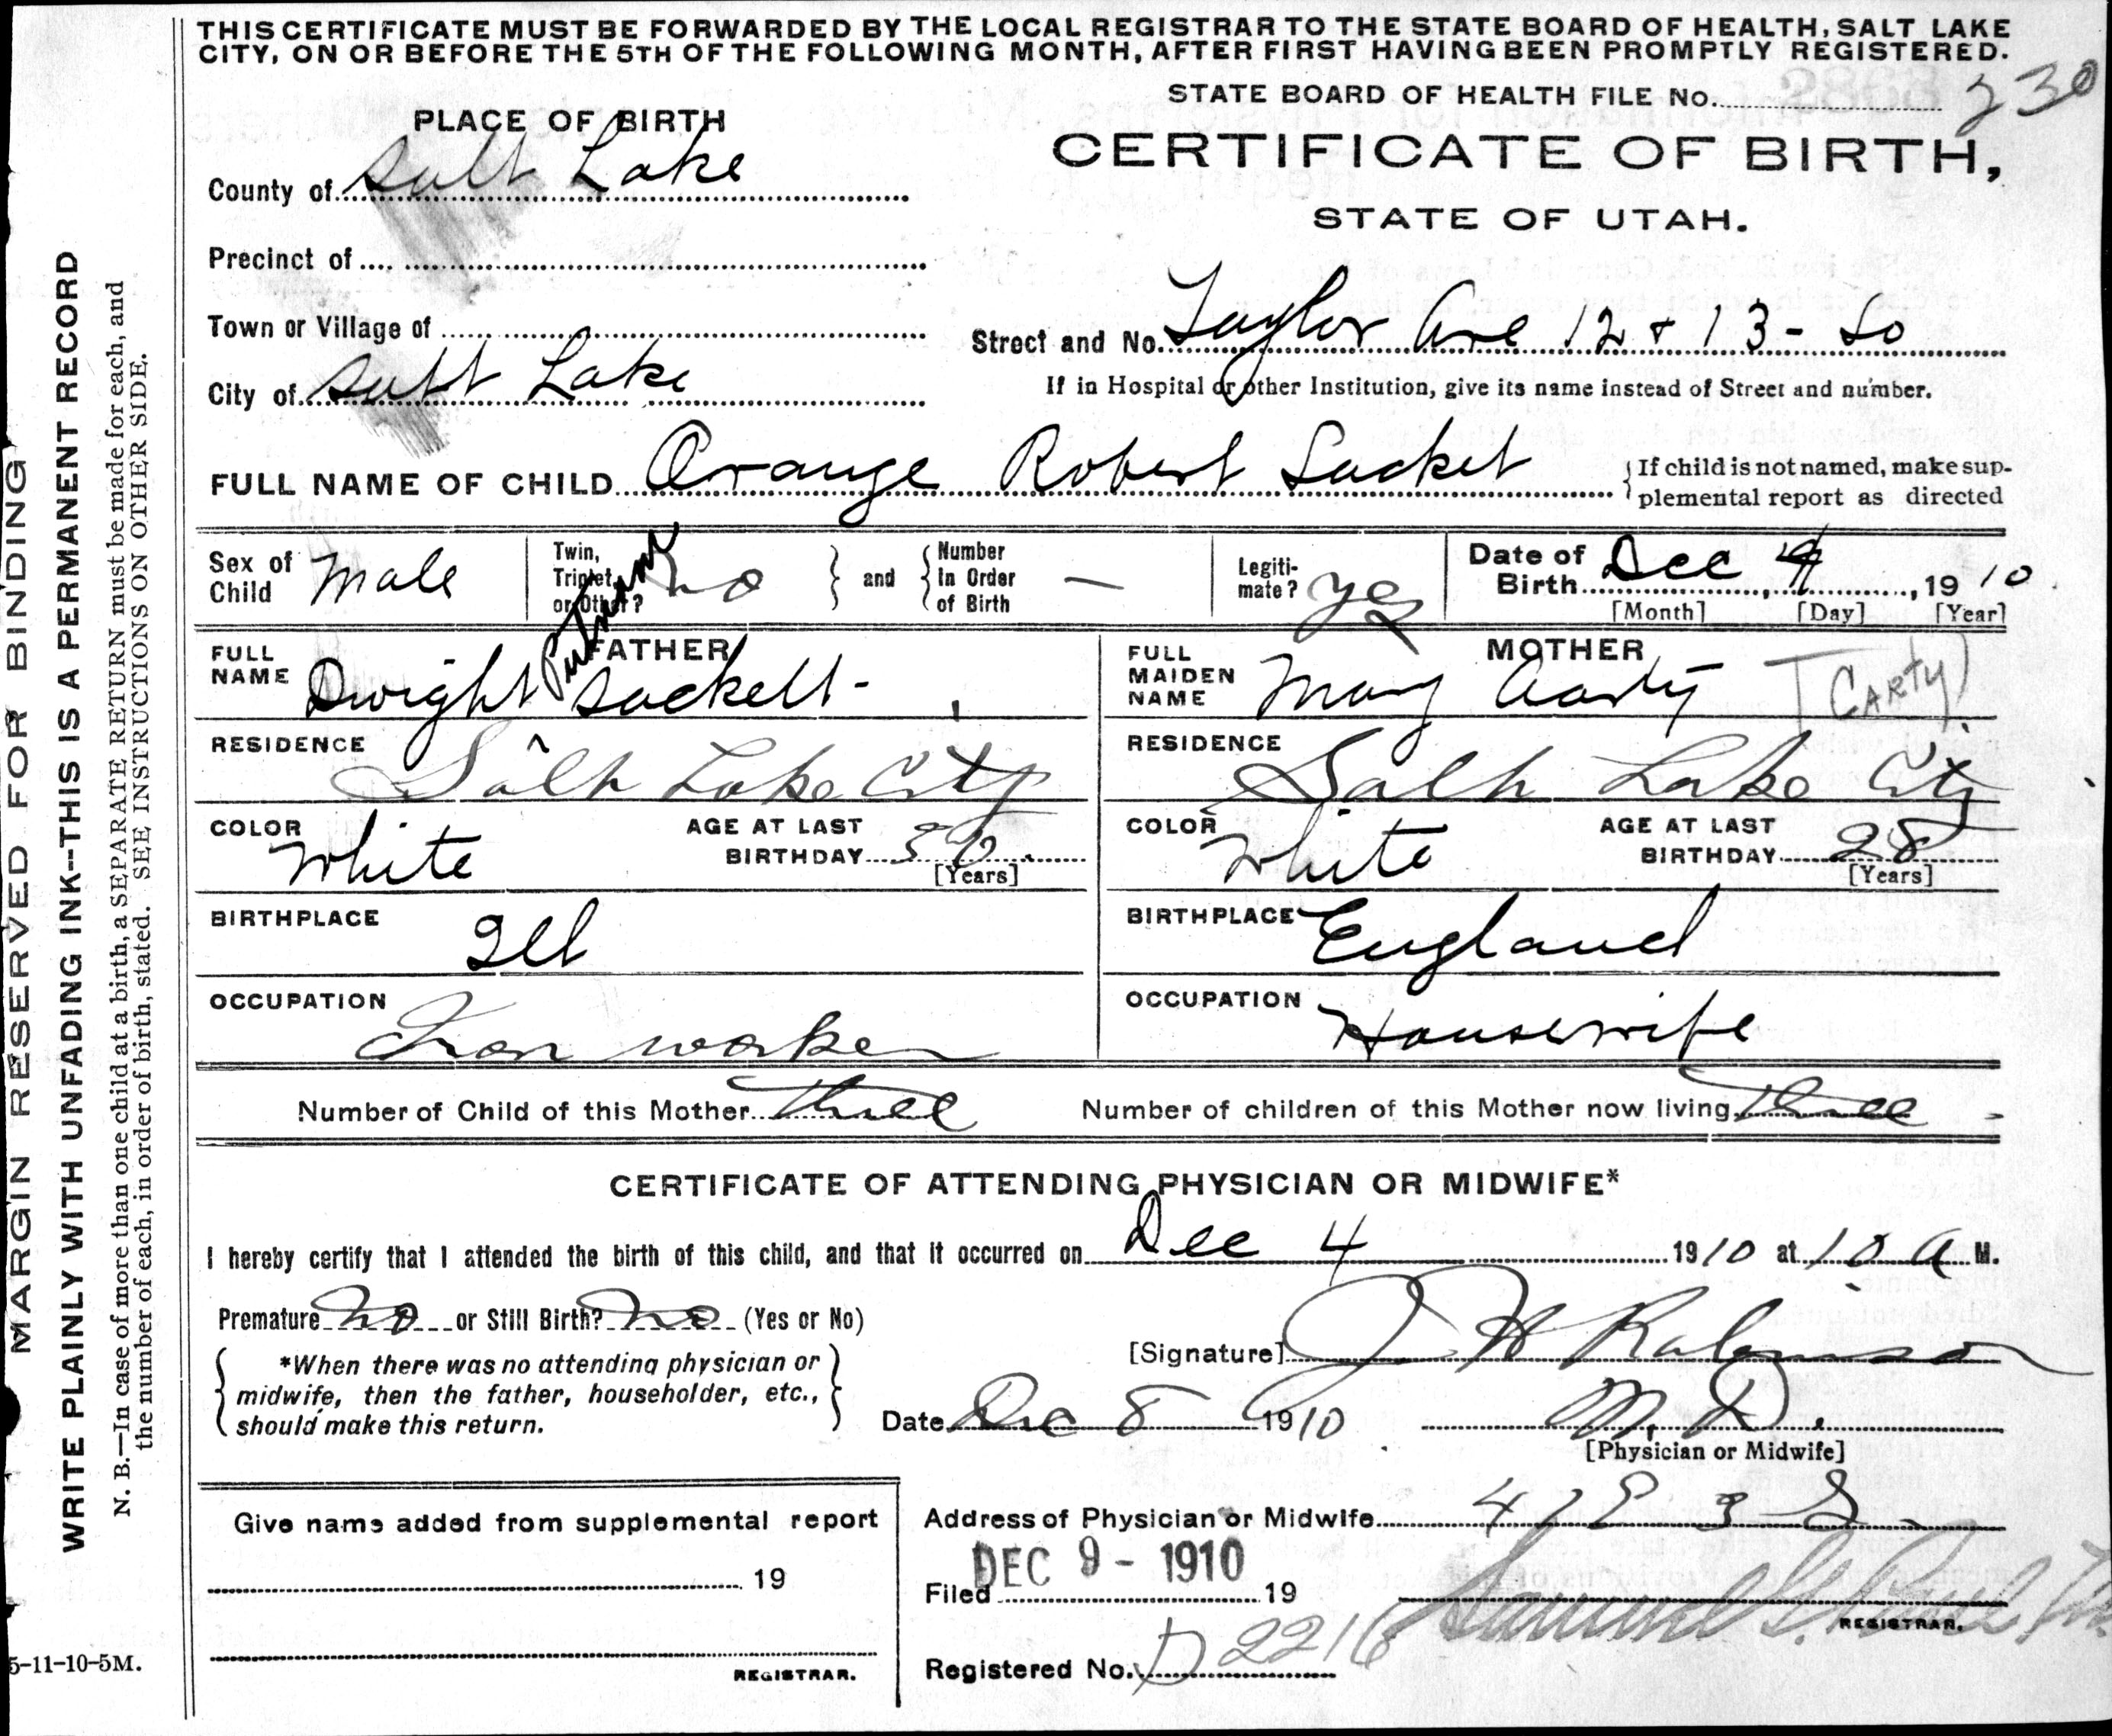 THIS CERTIFICATE MUST BE FORWARDED BY THE LOCAL REGISTRAR TO THE STATE BOARD OF HEALTH, SALT LAKE
CITY, ON OR BEFORE THE 5TH OF THE FOLLOWING MONTH, AFTER FIRST HAVING BEEN PROMPTLY REGISTERED.
STATE BOARD OF HEALTH FILE No. 230
PLACE OF BIRTH
CERTIFICATE OF BIRTH,
STATE OF UTAH.
County of Salt Lake
Precinct of
Town or Village of
Street and No. Taylor Ave 12 & 13 - So
City of Salt Lake
If in Hospital or other Institution, give its name instead of Street and number.
FULL NAME OF CHILD Orange Robert Sacket
{If child is not named, make sup-
plemental report as directed
Sex of Child Male
Twin, Triplet, or Other? no } and { Number in Order of Birth —
Legiti-mate? yes
Date of Birth Dec 4, 1910
[Month] [Day] [Year]
FATHER
FULL NAME Dwight Putnam Sackett -
MOTHER
FULL MAIDEN NAME Mary Carty (CARTY)
RESIDENCE Salt Lake City
RESIDENCE Salt Lake City
COLOR White AGE AT LAST BIRTHDAY 30 [Years]
COLOR White AGE AT LAST BIRTHDAY 28 [Years]
BIRTHPLACE Ill
BIRTHPLACE England
OCCUPATION Iron worker
OCCUPATION Housewife
Number of Child of this Mother three Number of children of this Mother now living three
CERTIFICATE OF ATTENDING PHYSICIAN OR MIDWIFE*
I hereby certify that I attended the birth of this child, and that it occurred on Dec 4 1910 at 10 A M.
Premature no or Still Birth? no (Yes or No)
[Signature] J H Robinson
{ *When there was no attending physician or
midwife, then the father, householder, etc.,
should make this return. }
Date Dec 8 1910 M.D.
[Physician or Midwife]
Give name added from supplemental report
19
REGISTRAR.
Address of Physician or Midwife 41 E 3 S
Filed DEC 9 - 1910 19
REGISTRAR.
Registered No. D 2216
MARGIN RESERVED FOR BINDING
WRITE PLAINLY WITH UNFADING INK--THIS IS A PERMANENT RECORD
N. B.—In case of more than one child at a birth, a SEPARATE RETURN must be made for each, and
the number of each, in order of birth, stated. SEE INSTRUCTIONS ON OTHER SIDE.
5-11-10-5M.